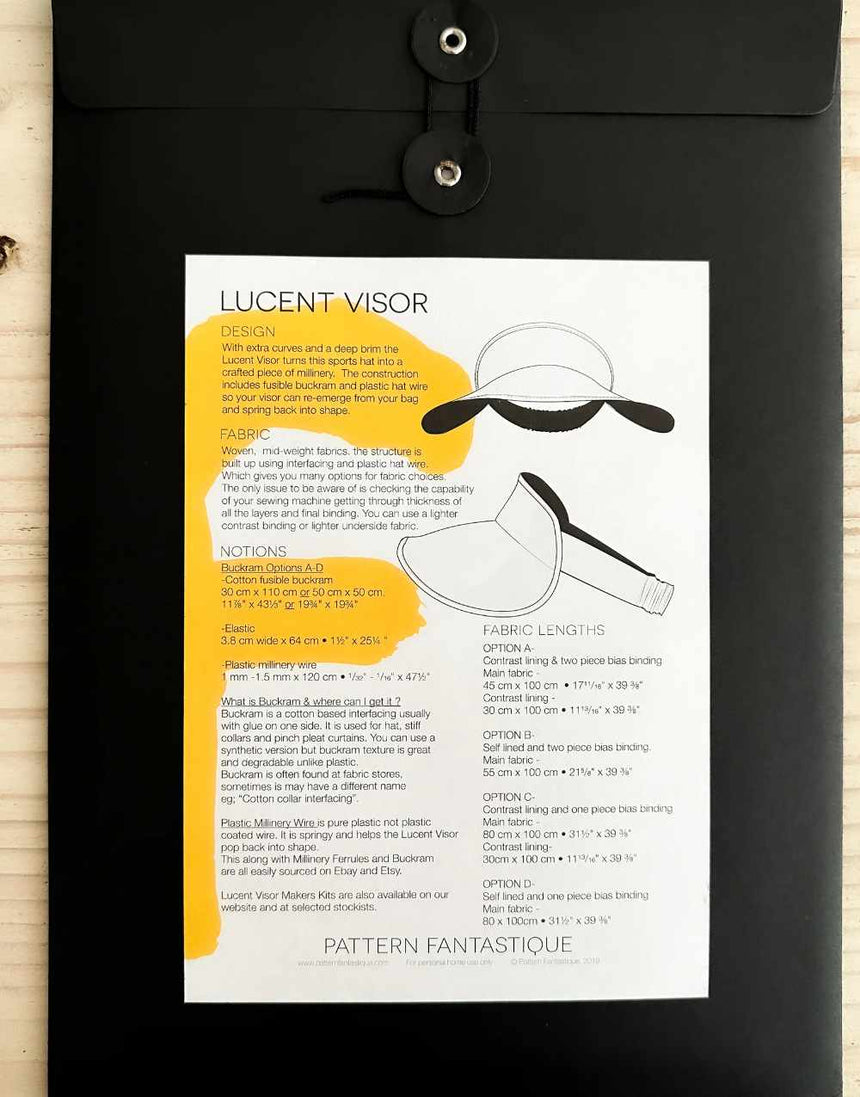 LUCENT VISOR
DESIGN
With extra curves and a deep brim the
Lucent Visor turns this sports hat into a
crafted piece of millinery. The construction
includes fusible buckram and plastic hat wire
so your visor can re-emerge from your bag
and spring back into shape.
FABRIC
Woven, mid-weight fabrics. the structure is
built up using interfacing and plastic hat wire.
Which gives you many options for fabric choices.
The only issue to be aware of is checking the capability
of your sewing machine getting through thickness of
all the layers and final binding. You can use a lighter
contrast binding or lighter underside fabric.
NOTIONS
Buckram Options A-D
-Cotton fusible buckram
30 cm x 110 cm or 50 cm x 50 cm.
11⅞" x 43⅓" or 19¾" x 19¾"
-Elastic
3.8 cm wide x 64 cm • 1½" x 25¼ "
-Plastic millinery wire
1 mm -1.5 mm x 120 cm • 1/32" - 1/16" x 47½"
What is Buckram & where can I get it ?
Buckram is a cotton based interfacing usually
with glue on one side. It is used for hat, stiff
collars and pinch pleat curtains. You can use a
synthetic version but buckram texture is great
and degradable unlike plastic.
Buckram is often found at fabric stores,
sometimes is may have a different name
eg; "Cotton collar interfacing".
Plastic Millinery Wire is pure plastic not plastic
coated wire. It is springy and helps the Lucent Visor
pop back into shape.
This along with Millinery Ferrules and Buckram
are all easily sourced on Ebay and Etsy.
Lucent Visor Makers Kits are also available on our
website and at selected stockists.
FABRIC LENGTHS
OPTION A-
Contrast lining & two piece bias binding
Main fabric -
45 cm x 100 cm • 17 11/16" x 39 ⅜"
Contrast lining -
30 cm x 100 cm • 11 13/16" x 39 ⅜"
OPTION B-
Self lined and two piece bias binding.
Main fabric -
55 cm x 100 cm • 21⅝" x 39 ⅜"
OPTION C-
Contrast lining and one piece bias binding
Main fabric -
80 cm x 100 cm • 31½" x 39 ⅜"
Contrast lining-
30cm x 100 cm • 11 13/16" x 39 ⅜"
OPTION D-
Self lined and one piece bias binding
Main fabric -
80 x 100cm • 31½" x 39 ⅜"
PATTERN FANTASTIQUE
www.patternfantastique.com For personal home use only © Pattern Fantastique, 2019